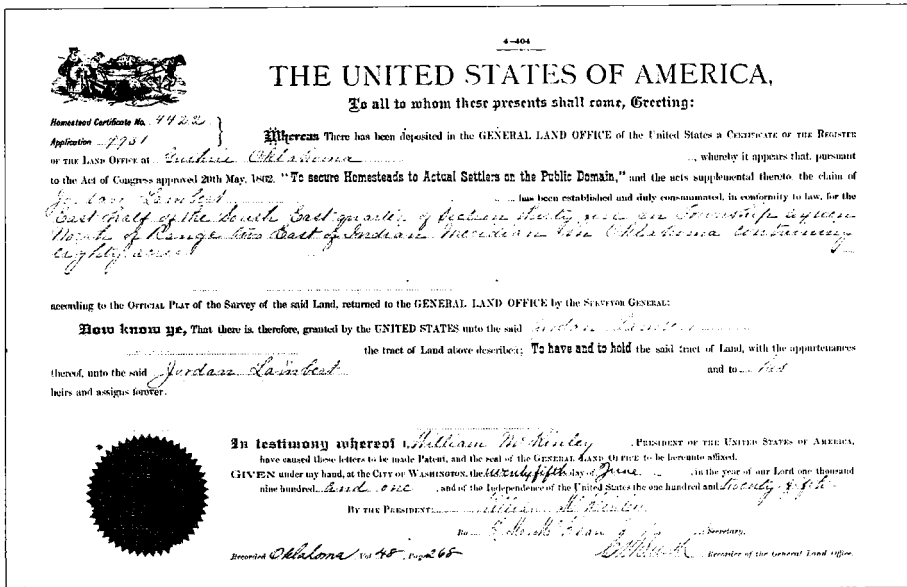 4—404
THE UNITED STATES OF AMERICA,
To all to whom these presents shall come, Greeting:
Homestead Certificate No. 4422
Application 7931
Whereas There has been deposited in the GENERAL LAND OFFICE of the United States a CERTIFICATE OF THE REGISTER
OF THE LAND OFFICE at Guthrie Oklahoma, whereby it appears that, pursuant
to the Act of Congress approved 20th May, 1862, "To secure Homesteads to Actual Settlers on the Public Domain," and the acts supplemental thereto, the claim of
Jordan Lambert has been established and duly consummated, in conformity to law, for the
East half of the South East quarter of Section thirty one in Township
North of Range two East of Indian Meridian in Oklahoma containing
eighty acres
according to the OFFICIAL PLAT of the Survey of the said Land, returned to the GENERAL LAND OFFICE by the SURVEYOR GENERAL:
Now know ye, That there is, therefore, granted by the UNITED STATES unto the said Jordan Lambert
the tract of Land above described; To have and to hold the said tract of Land, with the appurtenances
thereof, unto the said Jordan Lambert and to his
heirs and assigns forever.
In testimony whereof I, William McKinley, PRESIDENT OF THE UNITED STATES OF AMERICA,
have caused these letters to be made Patent, and the seal of the GENERAL LAND OFFICE to be hereunto affixed.
GIVEN under my hand, at the CITY OF WASHINGTON, the twenty fifth day of June, in the year of our Lord one thousand
nine hundred and one, and of the Independence of the United States the one hundred and twenty-fifth
BY THE PRESIDENT: William McKinley
By Secretary.
Recorded Oklahoma Vol 48, Page 268 Recorder of the General Land Office.